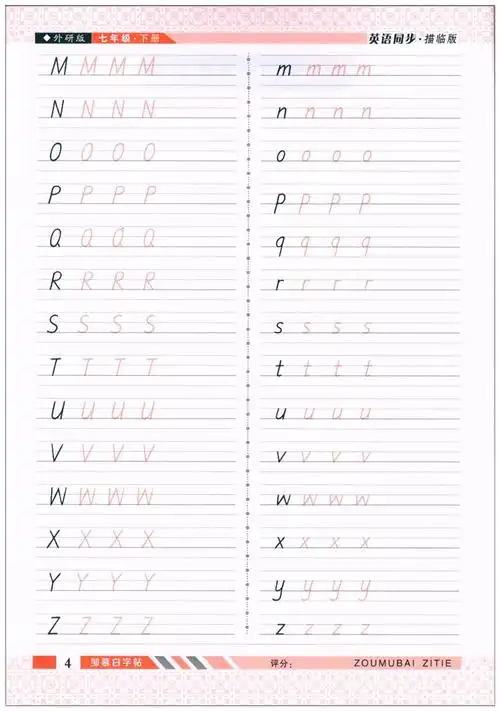 ◆外研版 七年级·下册 英语同步·描临版
M M M M
N N N N
O O O O
P P P P
Q Q Q Q
R R R R
S S S S
T T T T
U U U U
V V V V
W W W W
X X X X
Y Y Y Y
Z Z Z Z
m m m m
n n n n
o o o o
p p p p
q q q q
r r r r
s s s s
t t t t
u u u u
v v v v
w w w w
x x x x
y y y y
z z z z
4 邹慕白字帖 评分： ZOUMUBAI ZITIE